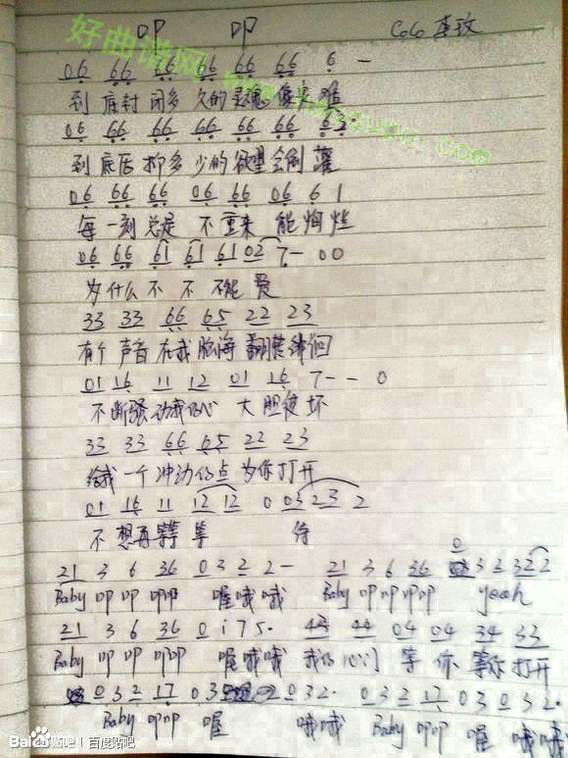 叩 叩 CoCo 李玟
好曲谱网
06 66 66 66 66 66 6 —
到底封闭多久的灵魂像来临
06 66 66 66 66 66 62·
到底压抑多少的欲望会倒塌
06 66 66 06 66 06 6 1
每一刻总是 不重来 能绚烂
06 66 61 61 61 02 7 — 00
为什么不 不 不能 爱
33 33 66 65 22 23
有个 声音在我脑海 翻腾徘徊
01 16 11 12 01 16 7 - - 0
不断骚动我的心 大胆使坏
33 33 66 65 22 23
给我一个冲动的点 为你打开
01 16 11 12 12 0 03 2 3 2
不想再等等 待
21 3 6 36 0 3 2 2 — 21 3 6 36 0 3 2 3 2 2
Baby 叩 叩 叩叩 喔哦哦 Baby 叩叩叩叩 yeah
21 3 6 36 0 i 7 5· 44 44 04 04 34 33
Baby 叩 叩 叩叩 喔哦哦 我的心门 等你 等你打开
0 3 2 17 0 3 2 0 3 2· 0 3 2 17 0 3 0 3 2·
Baby 叩叩 喔 哦哦 Baby 叩叩 喔 哦哦
Bai du 贴吧 | 百度贴吧